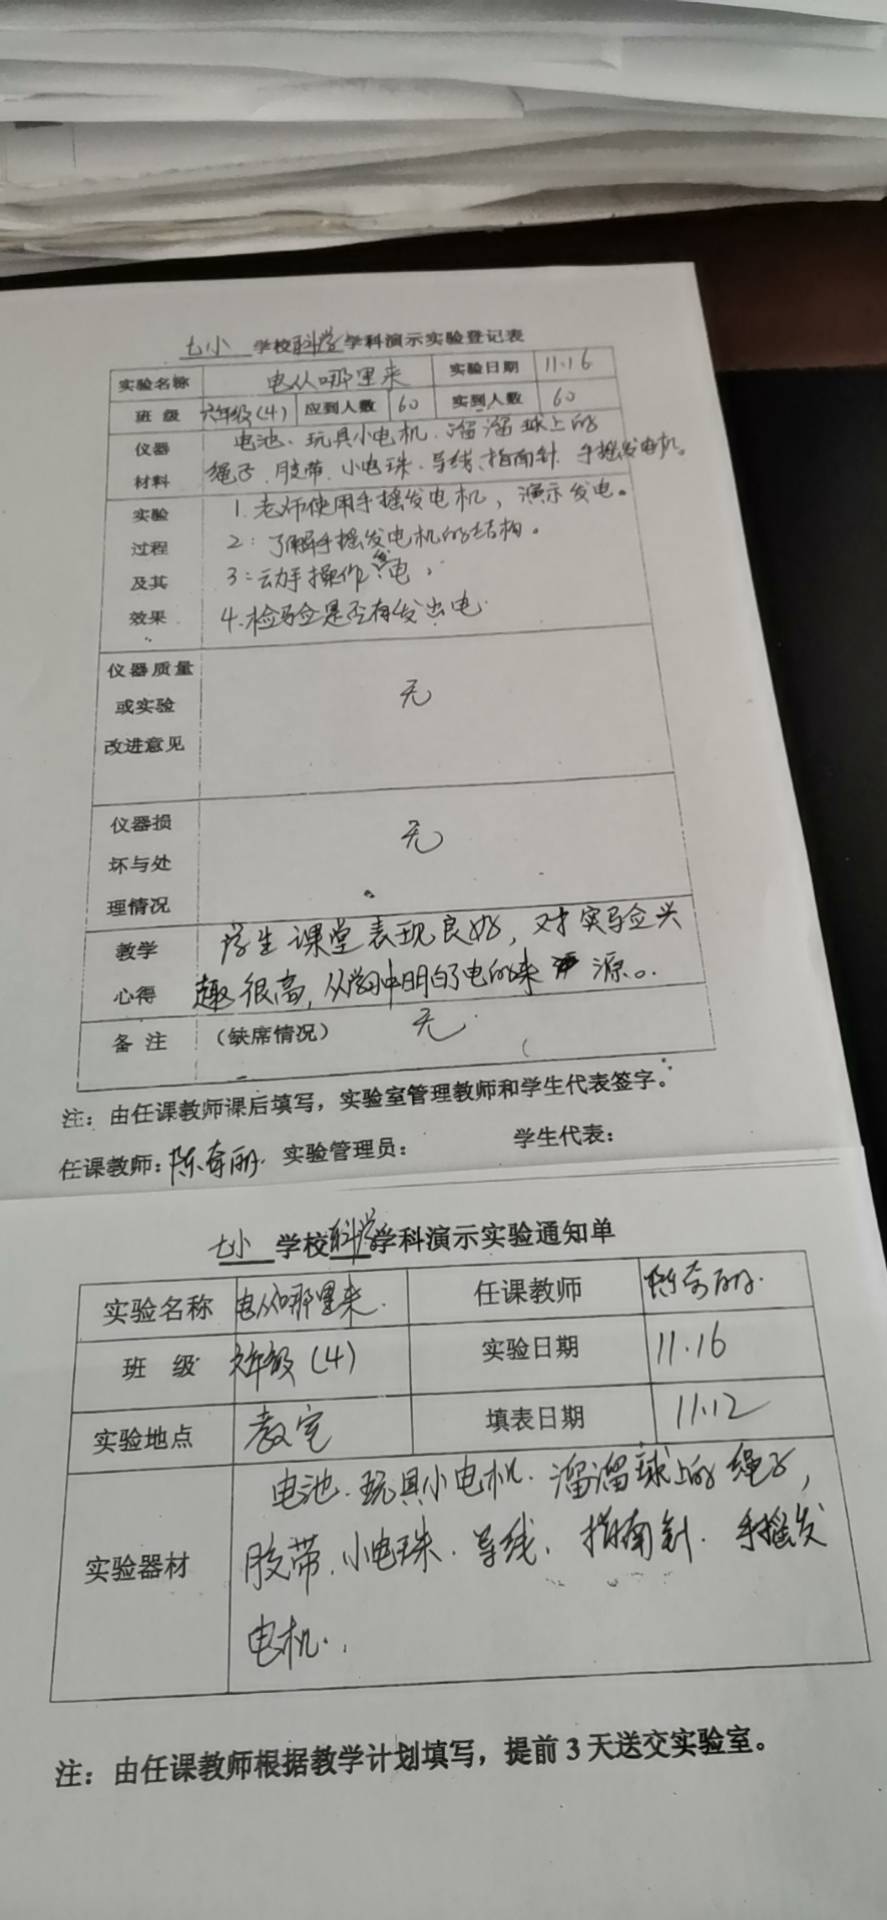 七小 学校科学学科演示实验登记表
实验名称 电从哪里来 实验日期 11.16
班 级 六年级(4) 应到人数 60 实到人数 60
仪器 电池、玩具小电机、溜溜球上的
材料 绳子、胶带、小电珠、导线、指南针、手摇发电机。
实验 1.老师使用手摇发电机，演示发电。
过程 2：了解手摇发电机的结构。
及其 3：动手操作 电，
效果 4.检验是否有发出电.
仪器质量
或实验 无
改进意见
仪器损
坏与处 无
理情况
教学 学生课堂表现良好，对实验兴
心得 趣很高，从学习中明白了电的来源。
备 注 （缺席情况） 无
注：由任课教师课后填写，实验室管理教师和学生代表签字。
任课教师：陈奇丽 实验管理员： 学生代表：
七小 学校科学学科演示实验通知单
实验名称 电从哪里来 任课教师 陈奇丽
班 级 六年级(4) 实验日期 11.16
实验地点 教室 填表日期 11.12
电池、玩具小电机、溜溜球上的绳子，
实验器材 胶带、小电珠、导线、指南针、手摇发
电机.
注：由任课教师根据教学计划填写，提前3天送交实验室。